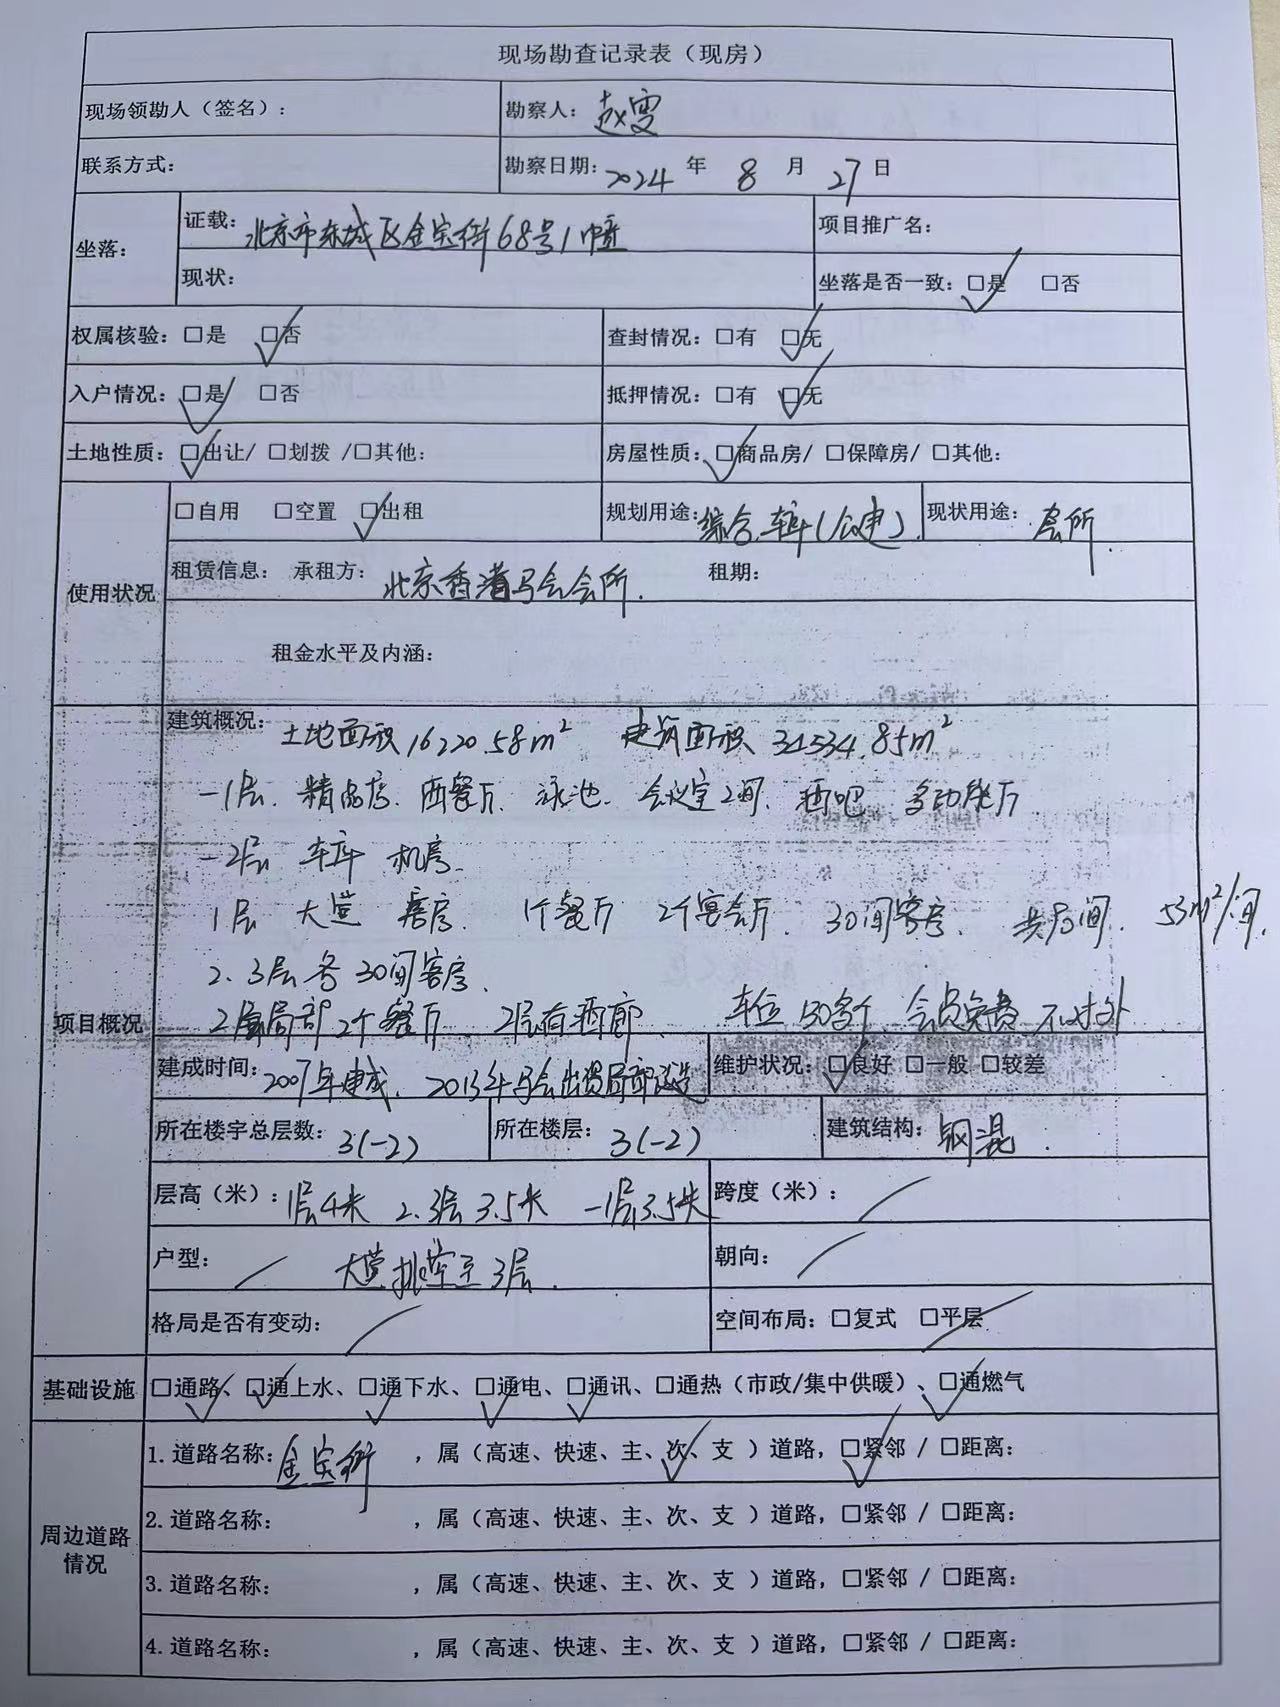 现场勘查记录表（现房）
现场领勘人（签名）： 勘察人：赵雯
联系方式： 勘察日期：2024 年 8 月 27 日
坐落： 证载：北京市东城区金宝街68号1幢 项目推广名：
现状： 坐落是否一致：☑是 □否
权属核验：□是 ☑否 查封情况：□有 ☑无
入户情况：☑是 □否 抵押情况：□有 ☑无
土地性质：☑出让/ □划拨 /□其他： 房屋性质：☑商品房/ □保障房/ □其他：
使用状况 □自用 □空置 ☑出租 规划用途：综合、车库(公建) 现状用途：会所.
租赁信息： 承租方：北京香港马会会所. 租期：
租金水平及内涵：
项目概况 建筑概况：土地面积16220.58m² 建筑面积 34534.85m²
-1层. 精品店. 西餐厅. 泳池. 会议室2间. 酒吧 多功能厅
-2层 车库 机房.
1层 大堂 客房. 1个餐厅 2个宴会厅. 30间客房. 共90间. 53m²/间.
2. 3层各30间客房.
2层局部2个餐厅 2层有酒廊 车位150多个 会员免费 不对外
建成时间：2007年建成. 2013年马会出资局部改造 维护状况：☑良好 □一般 □较差
所在楼宇总层数：3(-2) 所在楼层：3(-2) 建筑结构：钢混.
层高（米）：1层4米 2.3层3.5米 -1层3.5米 跨度（米）：/
户型：/ 大堂挑空至3层. 朝向：/
格局是否有变动：/ 空间布局：□复式 □平层 /
基础设施 ☑通路、☑通上水、☑通下水、☑通电、☑通讯、□通热（市政/集中供暖）、☑通燃气
周边道路情况 1.道路名称：金宝街 ，属（高速、快速、主、次✓、支 ）道路，☑紧邻 / □距离：
2.道路名称： ，属（高速、快速、主、次、支 ）道路，□紧邻 / □距离：
3.道路名称： ，属（高速、快速、主、次、支 ）道路，□紧邻 / □距离：
4.道路名称： ，属（高速、快速、主、次、支 ）道路，□紧邻 / □距离：